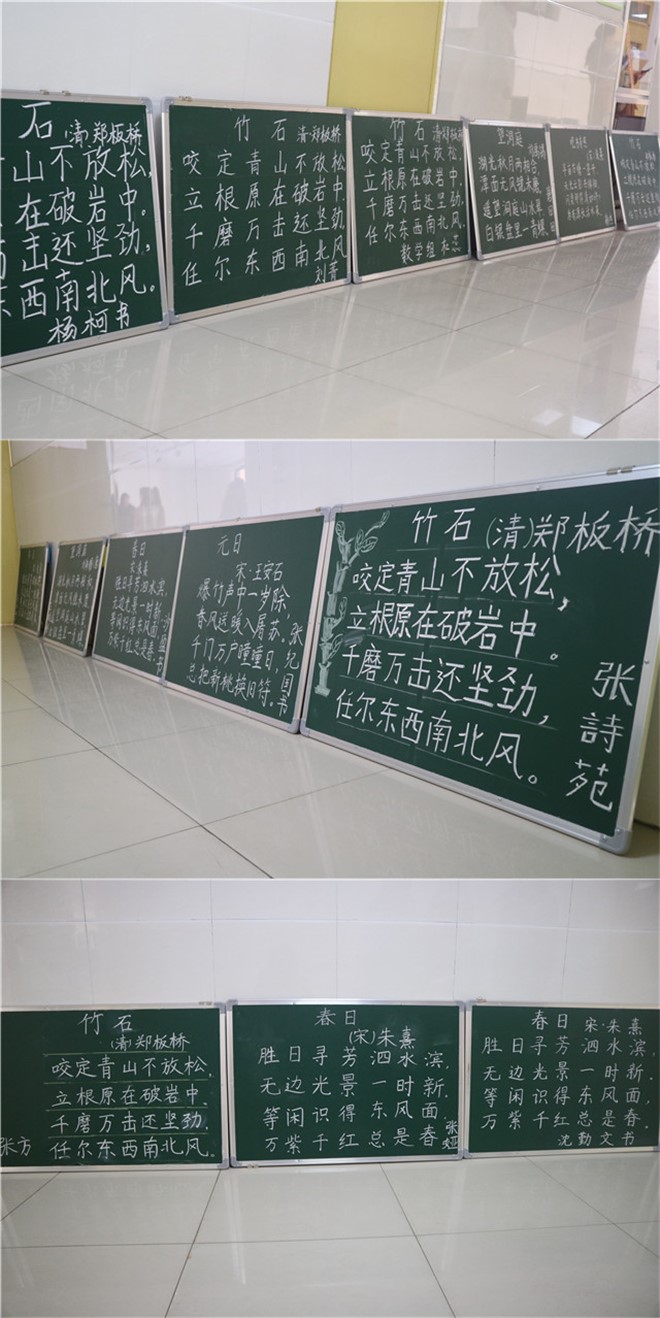 石
(清)郑板桥
山不放松,
在破岩中。
击还坚劲,
西南北风。
杨柯书
竹石 清·郑板桥
咬定青山不放松
立根原在破岩中
千磨万击还坚劲
任尔东西南北风
刘菁
竹石 清郑板桥
咬定青山不放松,
立根原在破岩中.
千磨万击还坚劲,
任尔东西南北风.
数学组
望洞庭
湖光秋月两相合,
潭面无风镜未磨.
遥望洞庭山水翠,
白银盘里一青螺.
竹石
望洞庭
春日
胜日寻芳泗水滨,
无边光景一时新.
等闲识得东风面,
万紫千红总是春.
元日
宋·王安石
爆竹声中一岁除,
春风送暖入屠苏.
千门万户曈曈日,
总把新桃换旧符。
张纪国书
竹石(清)郑板桥
咬定青山不放松,
立根原在破岩中。
千磨万击还坚劲,
任尔东西南北风。
张詩苑
竹石
(清)郑板桥
咬定青山不放松,
立根原在破岩中.
千磨万击还坚劲.
任尔东西南北风.
张方
春日
(宋)朱熹
胜日寻芳泗水滨,
无边光景一时新.
等闲识得东风面,
万紫千红总是春
春日 宋·朱熹
胜日寻芳泗水滨,
无边光景一时新.
等闲识得东风面,
万紫千红总是春.
沈勤文书